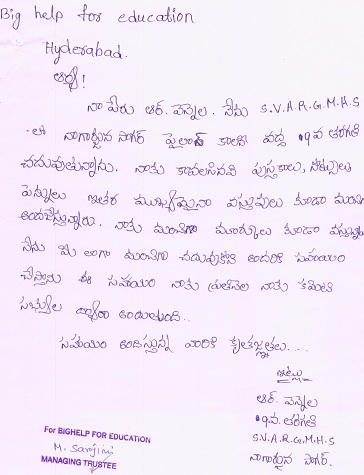 Big help for education
Hyderabad.
ఆర్యా!
నా పేరు ఆర్. వెన్నెల. నేను S.V.A.R.G.M.H.S
లో నాగార్జున సాగర్ పైలాన్ కాలని వద్ద 9వ తరగతి
చదువుతున్నాను. నాకు కావలసినవి పుస్తకాలు, నోట్బుక్లు
పెన్నులు ఇతర ముఖ్యమైన వస్తువులు కూడా మంచిగా
అందచేస్తున్నారు. నాకు మంచిగా మార్కులు కూడా వస్తున్నా
నేను మీ లాగా మంచిగా చదువుకొని అందరికి సహాయం
చేస్తాను ఈ సహాయం నాకు ప్రతినెల నాకు కమిటి
సభ్యుల ద్వారా అందుతుంది..
సహాయం అందిస్తున్న వారికి కృతజ్ఞతలు...
ఇట్లు
ఆర్. వెన్నెల
9వ. తరగతి
S.V.A.R.G.M.H.S
నాగార్జున సాగర్.
For BIGHELP FOR EDUCATION
M. Sarojini
MANAGING TRUSTEE